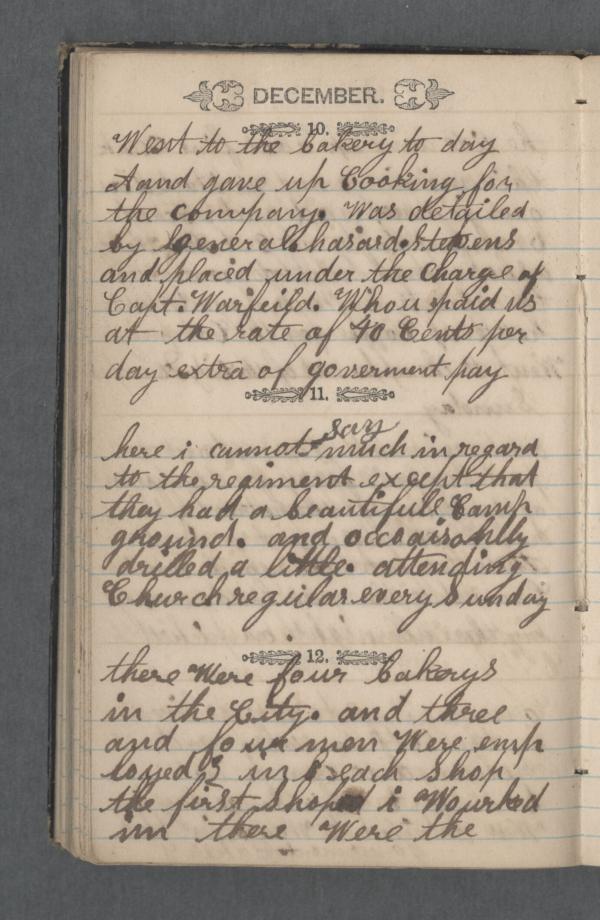 DECEMBER.
10.
Went to the bakery to day
Aand gave up Cooking for
the company. Was detailed
by general hasard. stevens
and placed under the charge of
Capt. Warfeild. Whou paid us
at the rate of 40 Cents per
day extra of goverment pay
11.
say
here i cannot much in regard
to the regiment except that
they had a beautifull Camp
ground. and occaisonlly
drilled a little. attending
Church regular every sunday
12.
there Were four bakerys
in the City. and three
and four men Were emp
loyed in each shop
the first shop i Wourked
im there Were the